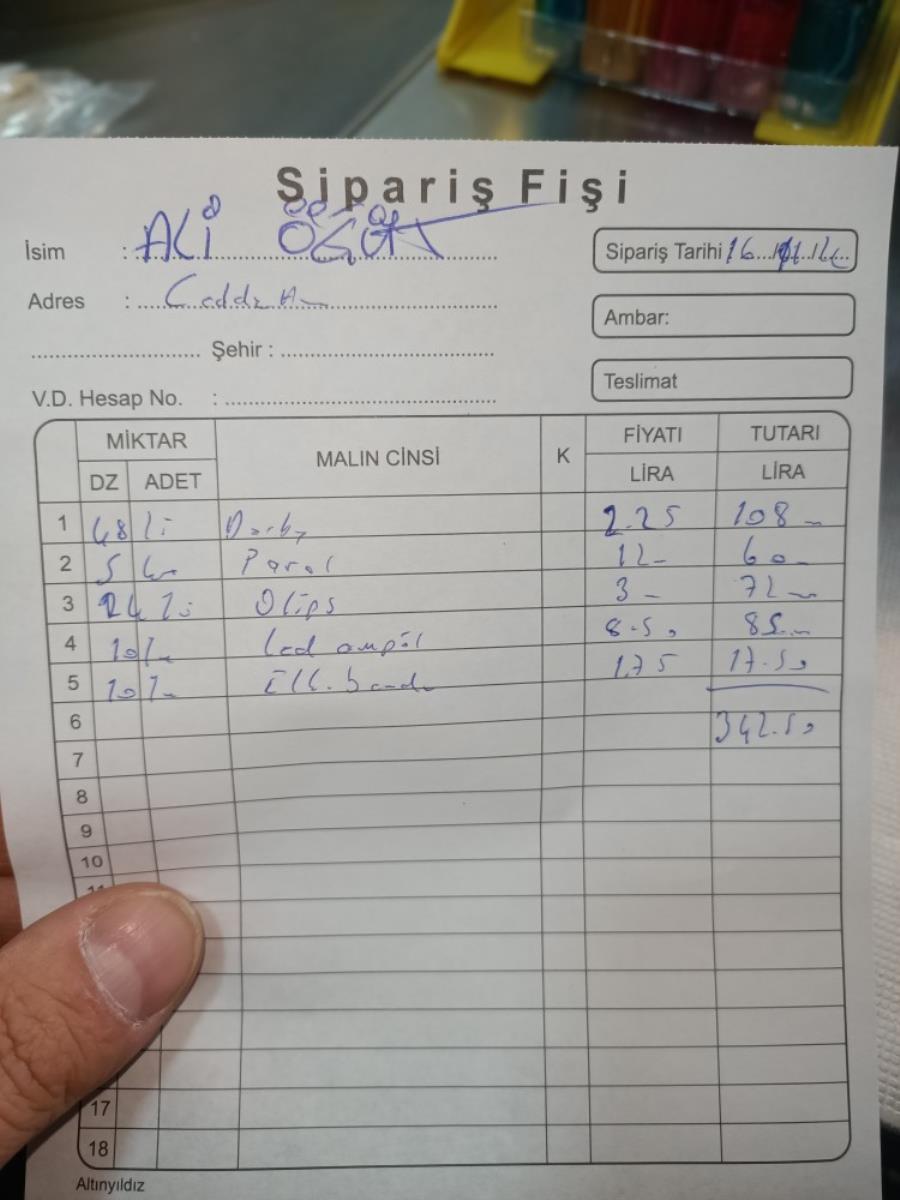 Sipariş Fişi
İsim : ALİ ÖĞÜT
Sipariş Tarihi 16
Adres :
Ambar:
Şehir :
Teslimat
V.D. Hesap No. :
MİKTAR MALIN CİNSİ K FİYATI TUTARI
DZ ADET LİRA LİRA
1 48 li Derby 2.25 108
2 5 Parol 12 60
3 24 lü Olips 3 72
4 10 Led ampül 8.50 85
5 10 1.75 17.50
6 342.50
7
8
9
10
17
18
Altınyıldız